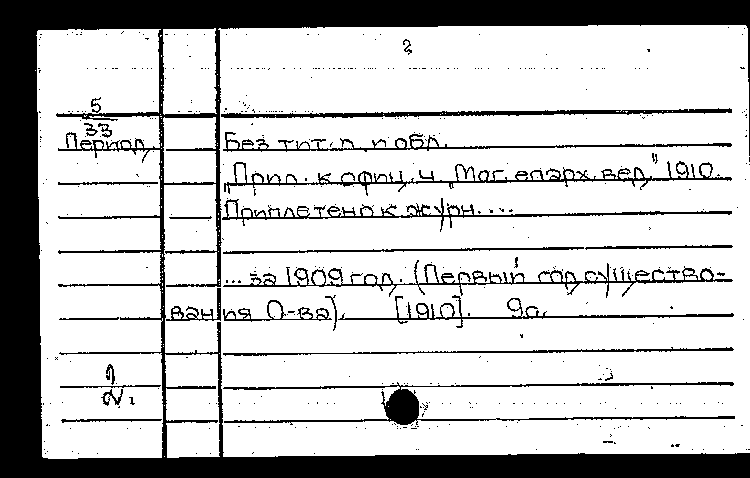 2
5
33
Период. Без тит. л. и обл.
"Прил. к офиц. ч. "Мог. епарх. вед." 1910.
Приплетено к журн. ...
... за 1909 год. (Первый год существо-
вания О-ва). [1910]. 9с.